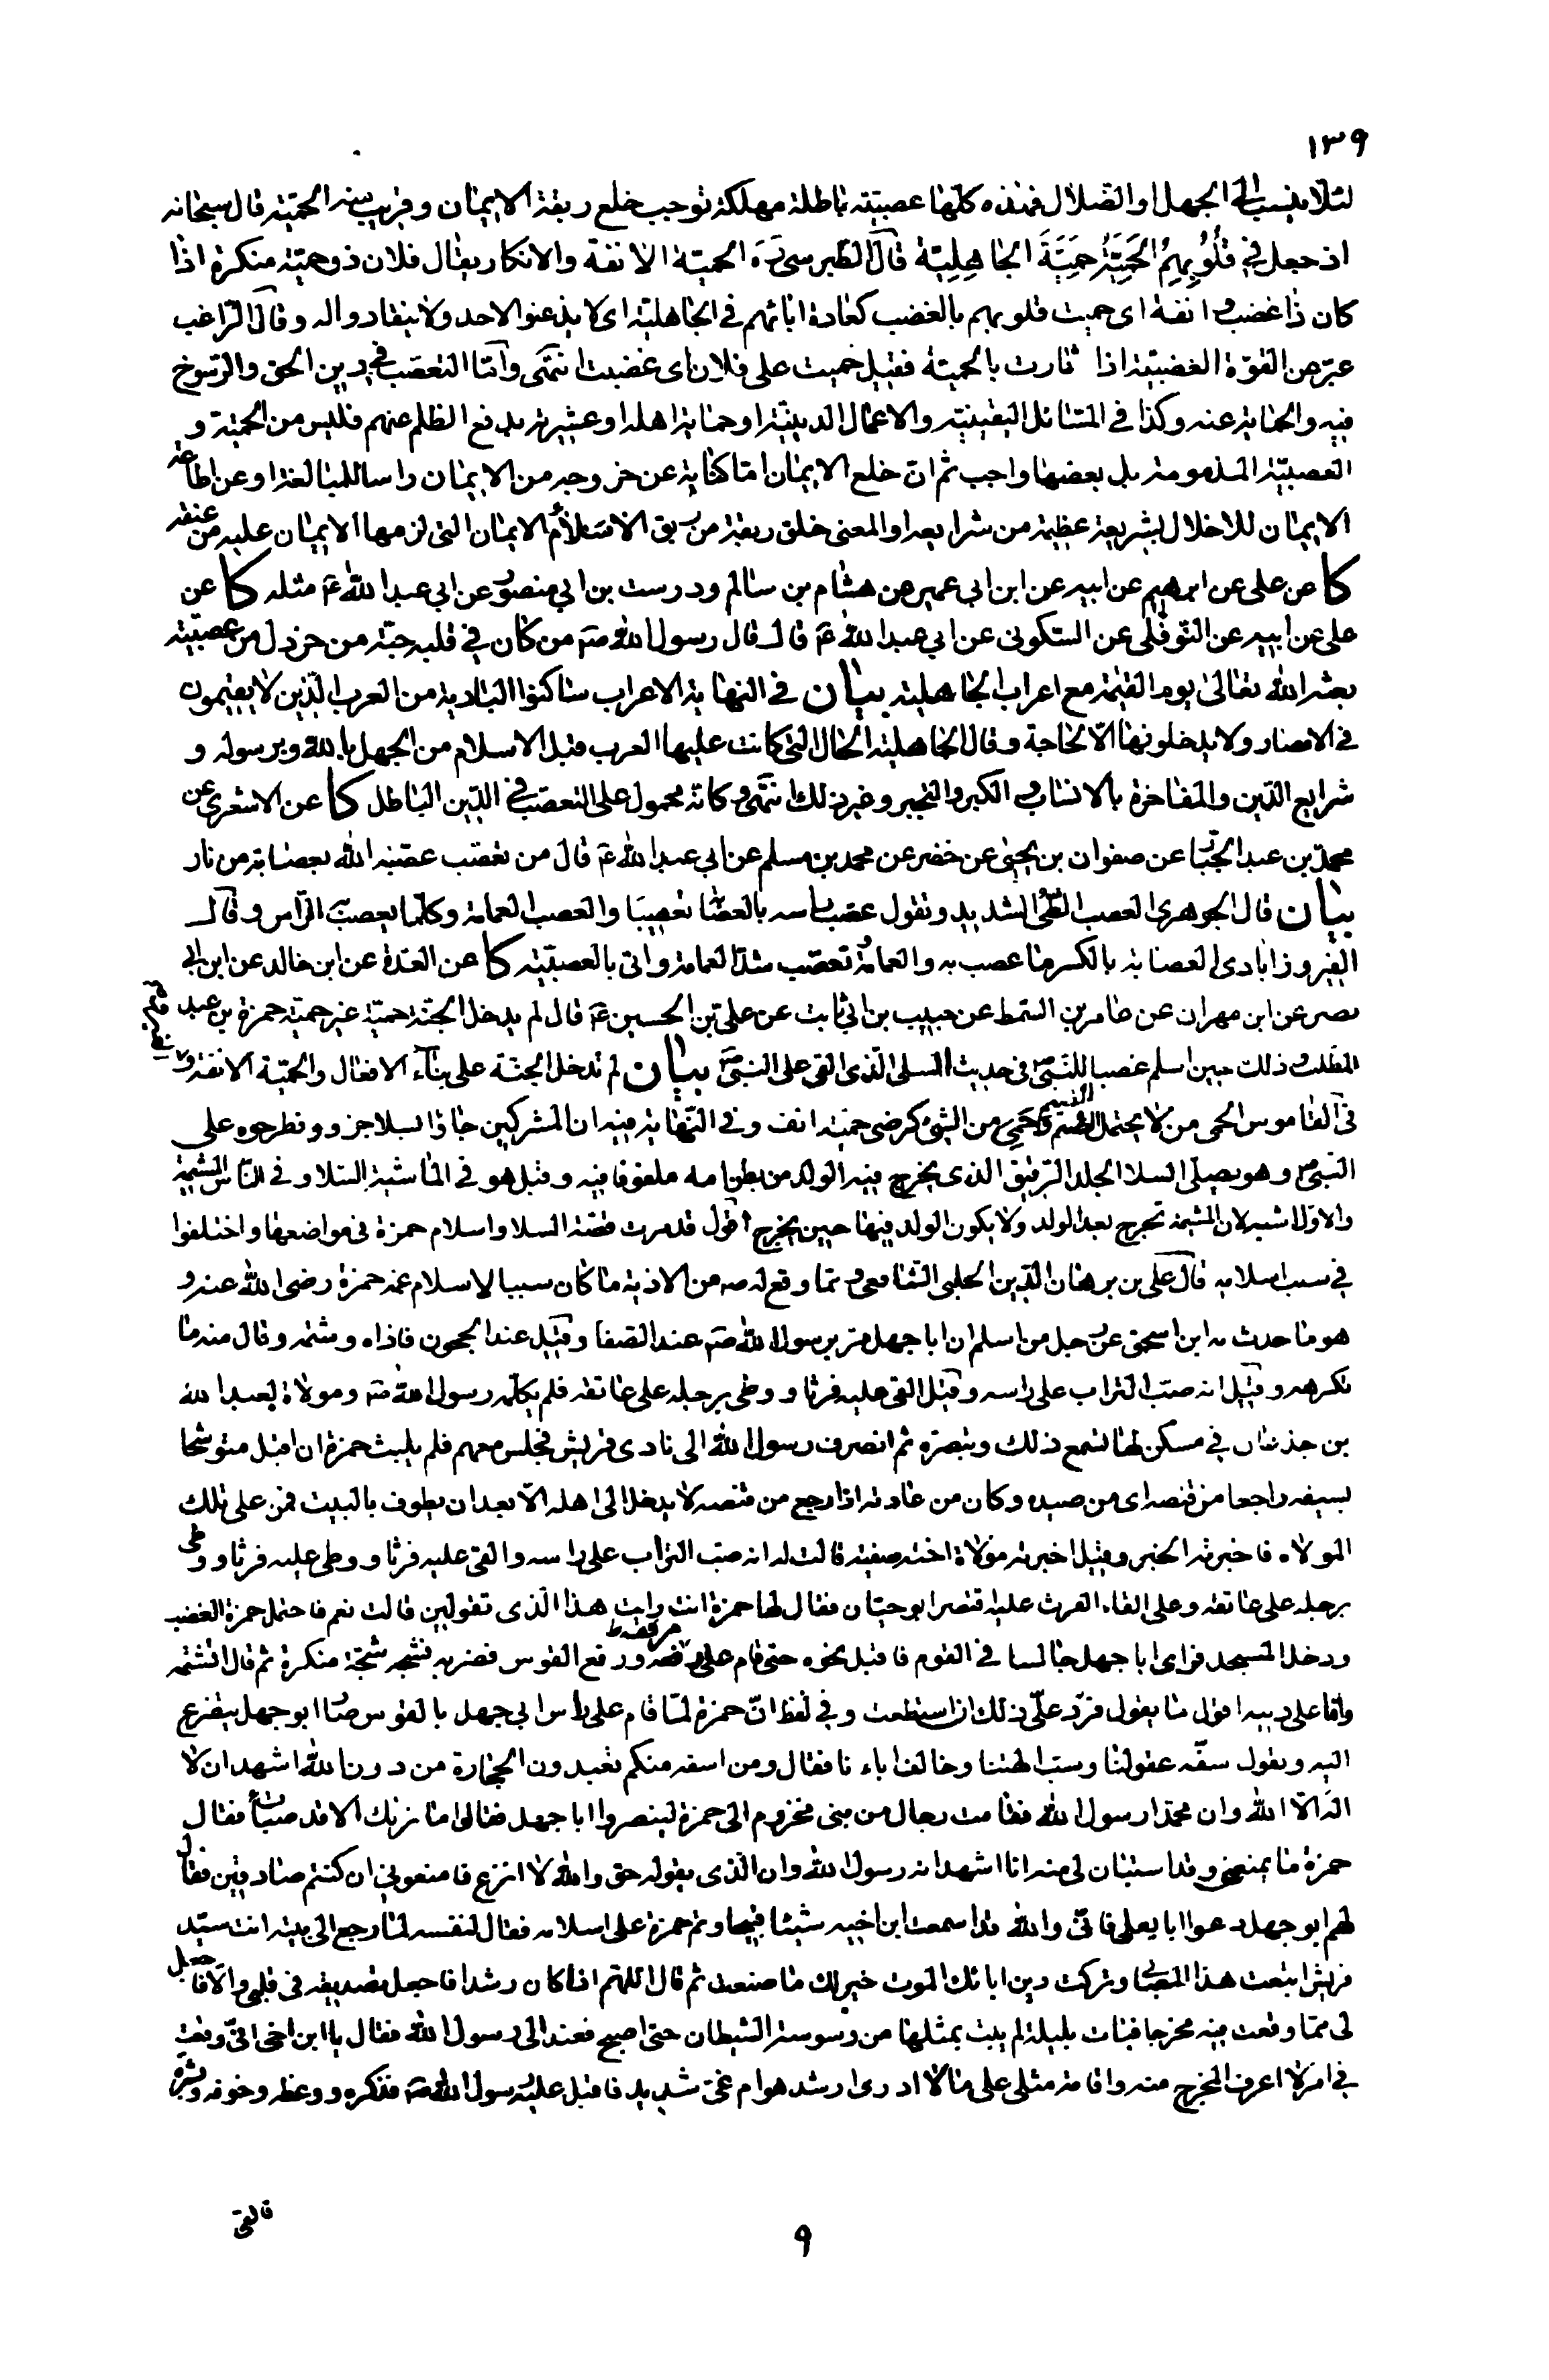 ١٣٩
لئلا ينسب الى الجهل او الضلال فهذه كلها عصبية باطلة مهلكة توجب خلع ربقة الايمان وقريب منه الحمية قال سبحانه
اذ جعل فى قُلُوبِهِمُ الْحَمِيَّةَ حَمِيَّةَ الجَاهِلِيَّة قال الطبرسى ره الحمية الانفة والانكار يقال فلان ذو حمية منكرة اذا
كان ذا غضب و انفة اى حميت قلوبهم بالغضب كعادة ابائهم فى الجاهلية اى لا يذعنوا لاحد ولا ينقادوا له وقال الراغب
عبر عن القوة الغضبية اذا ثارت بالحمية فقيل حميت على فلان اى غضبت انتهى واما التعصب فى دين الحق والرسوخ
فيه والحماية عنه وكذا فى المسائل اليقينية والاعمال الدينية او حماية اهله او عشيرته بدفع الظلم عنهم فليس من الحمية و
العصبية المذمومة بل بعضها واجب ثم ان خلع الايمان اما كناية عن خروجه من الايمان راسا للمبالغة او عن اطاعة
الايمان للاخلال بشريعة عظيمة من شرايعه او المعنى خلق ربقة من ربق الاسلام الايمان التى لزمها الايمان عليه من عنقه
كا عن على عن ابرهيم عن ابيه عن ابن ابى عمير عن هشام بن سالم ودرست بن ابى منصور عن ابى عبد الله ع مثله كا عن
على عن ابيه عن النوفلى عن السكونى عن ابى عبد الله ع قال قال رسول الله ص من كان فى قلبه حبة من خردل من عصبية
بعثه الله تعالى يوم القيمة مع اعراب الجاهلية بيان فى النهاية الاعراب ساكنوا البادية من العرب الذين لا يقيمون
فى الامصار ولا يدخلونها الا لحاجة وقال الجاهلية الحال التى كانت عليها العرب قبل الاسلام من الجهل بالله وبرسوله و
شرايع الدين والمفاخرة بالانساب و الكبر والتجبر وغير ذلك انتهى و كانه محمول على التعصب فى الدين الباطل كا عن الاشعرى عن
محمد بن عبد الجبار عن صفوان بن يحيى عن خضر عن محمد بن مسلم عن ابى عبد الله ع قال من تعصب عصبه الله بعصابة من نار
بيان قال الجوهرى العصب الطى الشديد وتقول عصب راسه بالعصابة تعصيبا والعصب العمامة وكلما يعصب الراس وقال
الفيروزابادى العصابة بالكسر ما عصب به والعمامة و تعصب شد العمامة واتى بالعصبية كا عن العدة عن ابن خالد عن ابن ابى
نصر عن ابن مهران عن عامر بن السمط عن حبيب بن ابى ثابت عن على بن الحسين ع قال لم يدخل الجنة حمية غير حمية حمزة بن عبد
المطلب و ذلك حين اسلم غضبا للنبى ص فى حديث السلى الذى القى على النبى ص بيان لم تدخل الجنة على بناء الافعال والحمية الانفة و
فى القاموس الحمى من لا يحتمل الضيم وحمى من الشئ كرضى حمية انف وفى النهاية فيه ان المشركين جاؤا بسلا جزور فطرحوه على
النبى ص وهو يصلى السلا الجلد الرقيق الذى يخرج فيه الولد من بطن امه ملفوفا فيه وقيل هو فى الماشية السلا وفى الناس المشيمة
والاول اشبه لان المشيمة تخرج بعد الولد ولا يكون الولد فيها حين يخرج اقول قد مرت قصة السلا واسلام حمزة فى مواضعها واختلفوا
فى سبب اسلامه قال على بن برهان الدين الحلبى الشافعى و مما وقع له ص من الاذية ما كان سببا لاسلام عمه حمزة رضى الله عنه و
هو ما حدث به ابن اسحق عن رجل من اسلم ان ابا جهل مر برسول الله ص عند الصفا وقيل عند الحجون فاذاه وشتمه وقال منه ما
نكرهه وقيل انه صب التراب على راسه وقيل القى عليه فرثا و وطى برجله على عاتقه فلم يكلمه رسول الله ص ومولاة لعبد الله
بن جذعان فى مسكن لها تسمع ذلك وتبصره ثم انصرف رسول الله الى نادى قريش فجلس معهم فلم يلبث حمزة ان اقبل متوشحا
بسيفه راجعا من قنصه اى من صيده وكان من عادته اذا رجع من قنصه لا يدخل الى اهله الا بعد ان يطوف بالبيت فمر على تلك
المولاه فاخبرته الخبر وقيل اخبرته مولاة اخته صفية قالت له انه صب التراب على راسه والقى عليه فرثا ووطى عليه فرثا ووطى
برجله على عاتقه وعلى القاء الفرث عليه قتصر ابو حيان فقال لها حمزة انت رايت هذا الذى تقولين قالت نعم فاحتمل حمزة الغضب
ودخل المسجد فراى ابا جهل جالسا فى القوم فاقبل نحوه حتى قام على ورفع القوس فضربه فشجه شجة منكرة ثم قال اتشتمه
وانا على دينه اقول ما يقول فرد على ذلك ان استطعت وفى لفظ ان حمزة لما قام على راس ابى جهل بالقوس صار ابو جهل يتضرع
اليه ويقول سفه عقولنا وسب الهتنا وخالف اباءنا فقال ومن اسفه منكم تعبدون الحجارة من دون الله اشهد ان لا
اله الا الله وان محمدا رسول الله فقامت رجال من بنى مخزوم الى حمزة لينصروا ابا جهل فقالوا ما نراك الا قد صبات فقال
حمزة ما يمنعنى وقد استبان لى منه انا اشهد انه رسول الله وان الذى يقوله حق والله لا انزع فامنعونى ان كنتم صادقين فقال
لهم ابو جهل دعوا ابا يعلى فانى والله قد اسمعت ابن اخيه شيئا قبيحا وتم حمزة على اسلامه فقال لنفسه لما رجع الى بيته انت سيد
قريش اتبعت هذا الصابى وتركت دين ابائك الموت خير لك مما صنعت ثم قال اللهم ان كان رشدا فاجعل تصديقه فى قلبى والا فاجعل
لى مما وقعت فيه مخرجا فبات بليلة لم يبت بمثلها من وسوسة الشيطان حتى اصبح فغدا الى رسول الله فقال يا ابن اخى انى وقعت
فى امر لا اعرف المخرج منه واقامة مثلى على ما لا ادرى ارشد هو ام غى شديد فاقبل عليه رسول الله ص فذكره ووعظه وخوفه وبشره
فالقى
٩